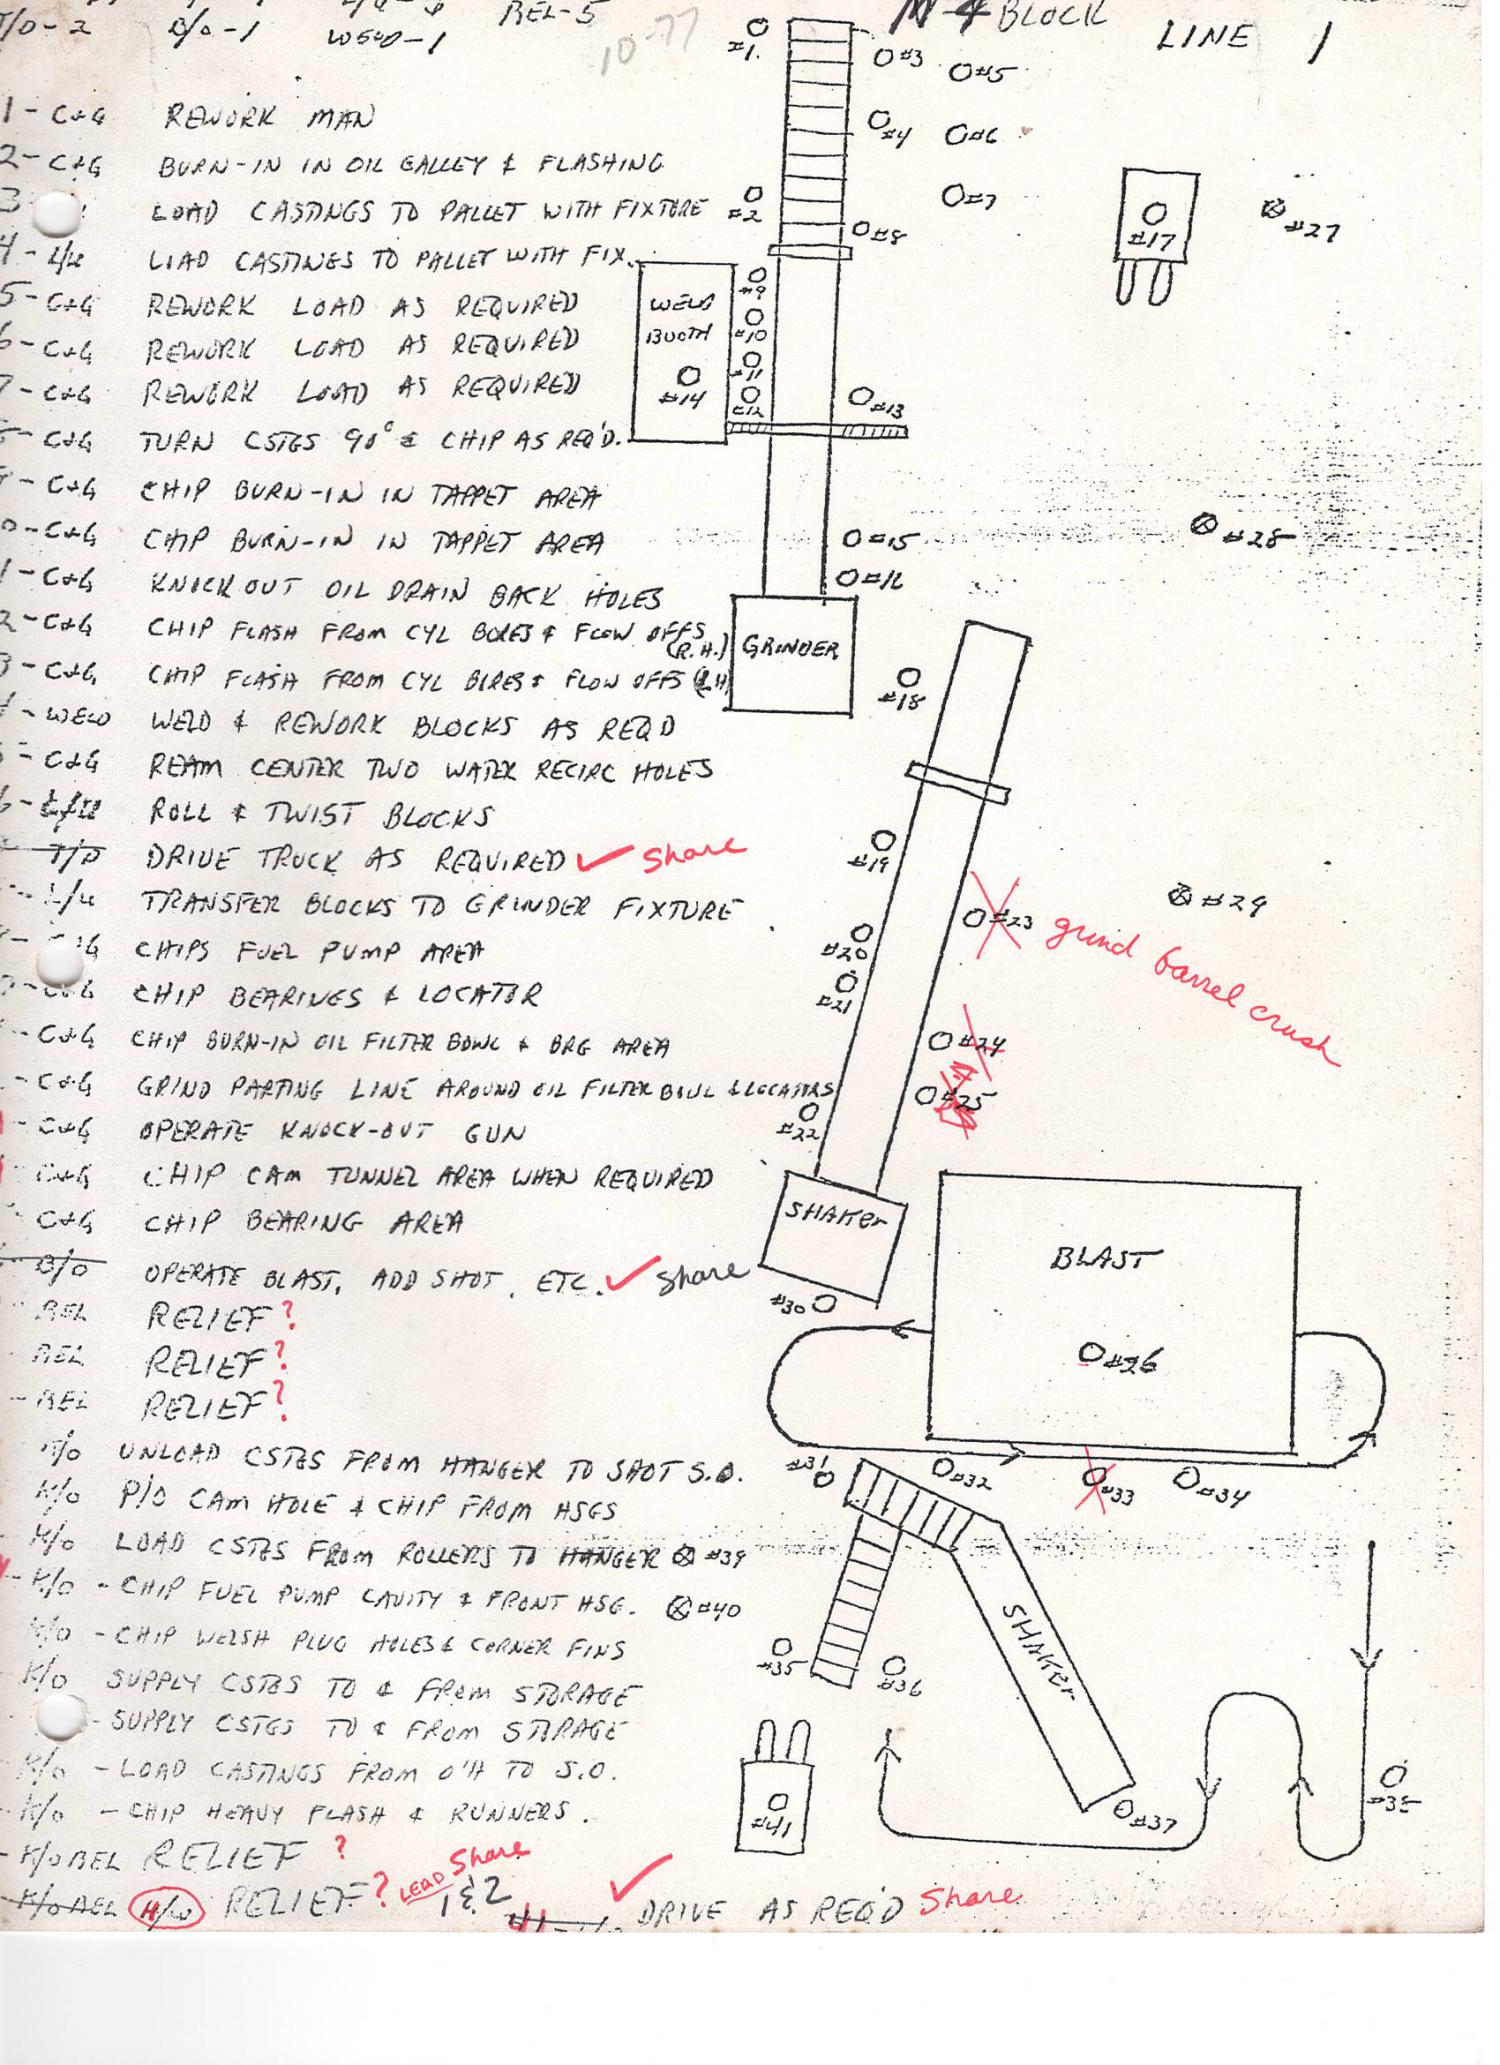 T/O-2 B/O-1 WELD-1 REL-5
10-77
BLOCK LINE 1
1 - C+G REWORK MAN
2 - C+G BURN-IN IN OIL GALLEY & FLASHING
3 LOAD CASTINGS TO PALLET WITH FIXTURE
4 - L/U LIAD CASTINGS TO PALLET WITH FIX.
5 - C+G REWORK LOAD AS REQUIRED
6 - C+G REWORK LOAD AS REQUIRED
7 - C+G REWORK LOAD AS REQUIRED
- C+G TURN CSTGS 90° & CHIP AS REQ'D.
- C+G CHIP BURN-IN IN TAPPET AREA
0 - C+G CHIP BURN-IN IN TAPPET AREA
1 - C+G KNICK OUT OIL DRAIN BACK HOLES
2 - C+G CHIP FLASH FROM CYL BORES & FLOW OFFS (R.H.)
3 - C+G CHIP FLASH FROM CYL BORES & FLOW OFFS (LH)
- WELD WELD & REWORK BLOCKS AS REQD
- C+G REAM CENTER TWO WATER RECIRC HOLES
6 - L/U ROLL & TWIST BLOCKS
T/O DRIVE TRUCK AS REQUIRED ✓ Share
- L/U TRANSFER BLOCKS TO GRINDER FIXTURE
CHIPS FUEL PUMP AREA
- C+G CHIP BEARINGS & LOCATOR
- C+G CHIP BURN-IN OIL FILTER BOWL & BRG AREA
- C+G GRIND PARTING LINE AROUND OIL FILTER BOWL & LOCATORS
- C+G OPERATE KNOCK-OUT GUN
C+G CHIP CAM TUNNEL AREA WHEN REQUIRED
C+G CHIP BEARING AREA
B/O OPERATE BLAST, ADD SHOT, ETC. ✓ Share
REL RELIEF ?
REL RELIEF ?
- REL RELIEF ?
K/O UNLOAD CSTGS FROM HANGER TO SHOT S.O.
K/O P/O CAM HOLE & CHIP FROM HSGS
K/O LOAD CSTGS FROM ROLLERS TO HANGER #39
- K/O - CHIP FUEL PUMP CAVITY & FRONT HSG. #40
K/O - CHIP WELSH PLUG HOLES & CORNER FINS
K/O SUPPLY CSTGS TO & FROM STORAGE
- SUPPLY CSTGS TO & FROM STORAGE
K/O - LOAD CASTINGS FROM O'H TO S.O.
- K/O - CHIP HEAVY FLASH & RUNNERS.
- K/O REL RELIEF ?
K/O REL H/LO RELIEF ? LEAD Share 1 & 2
41 ✓ DRIVE AS REQ'D Share
#1.
#3
#5
#4
#6
#2
#7
#8
#17
#27
WELD BOOTH
#14
#9
#10
#11
#12
#13
#28
#15
#16
GRINDER
#18
#19
#29
#23 grind barrel crush
#20
#21
#24
#25
#22
SHAKER
#30
BLAST
#26
#31
#32
#33
#34
#35
#36
SHAKER
#41
#37
#38